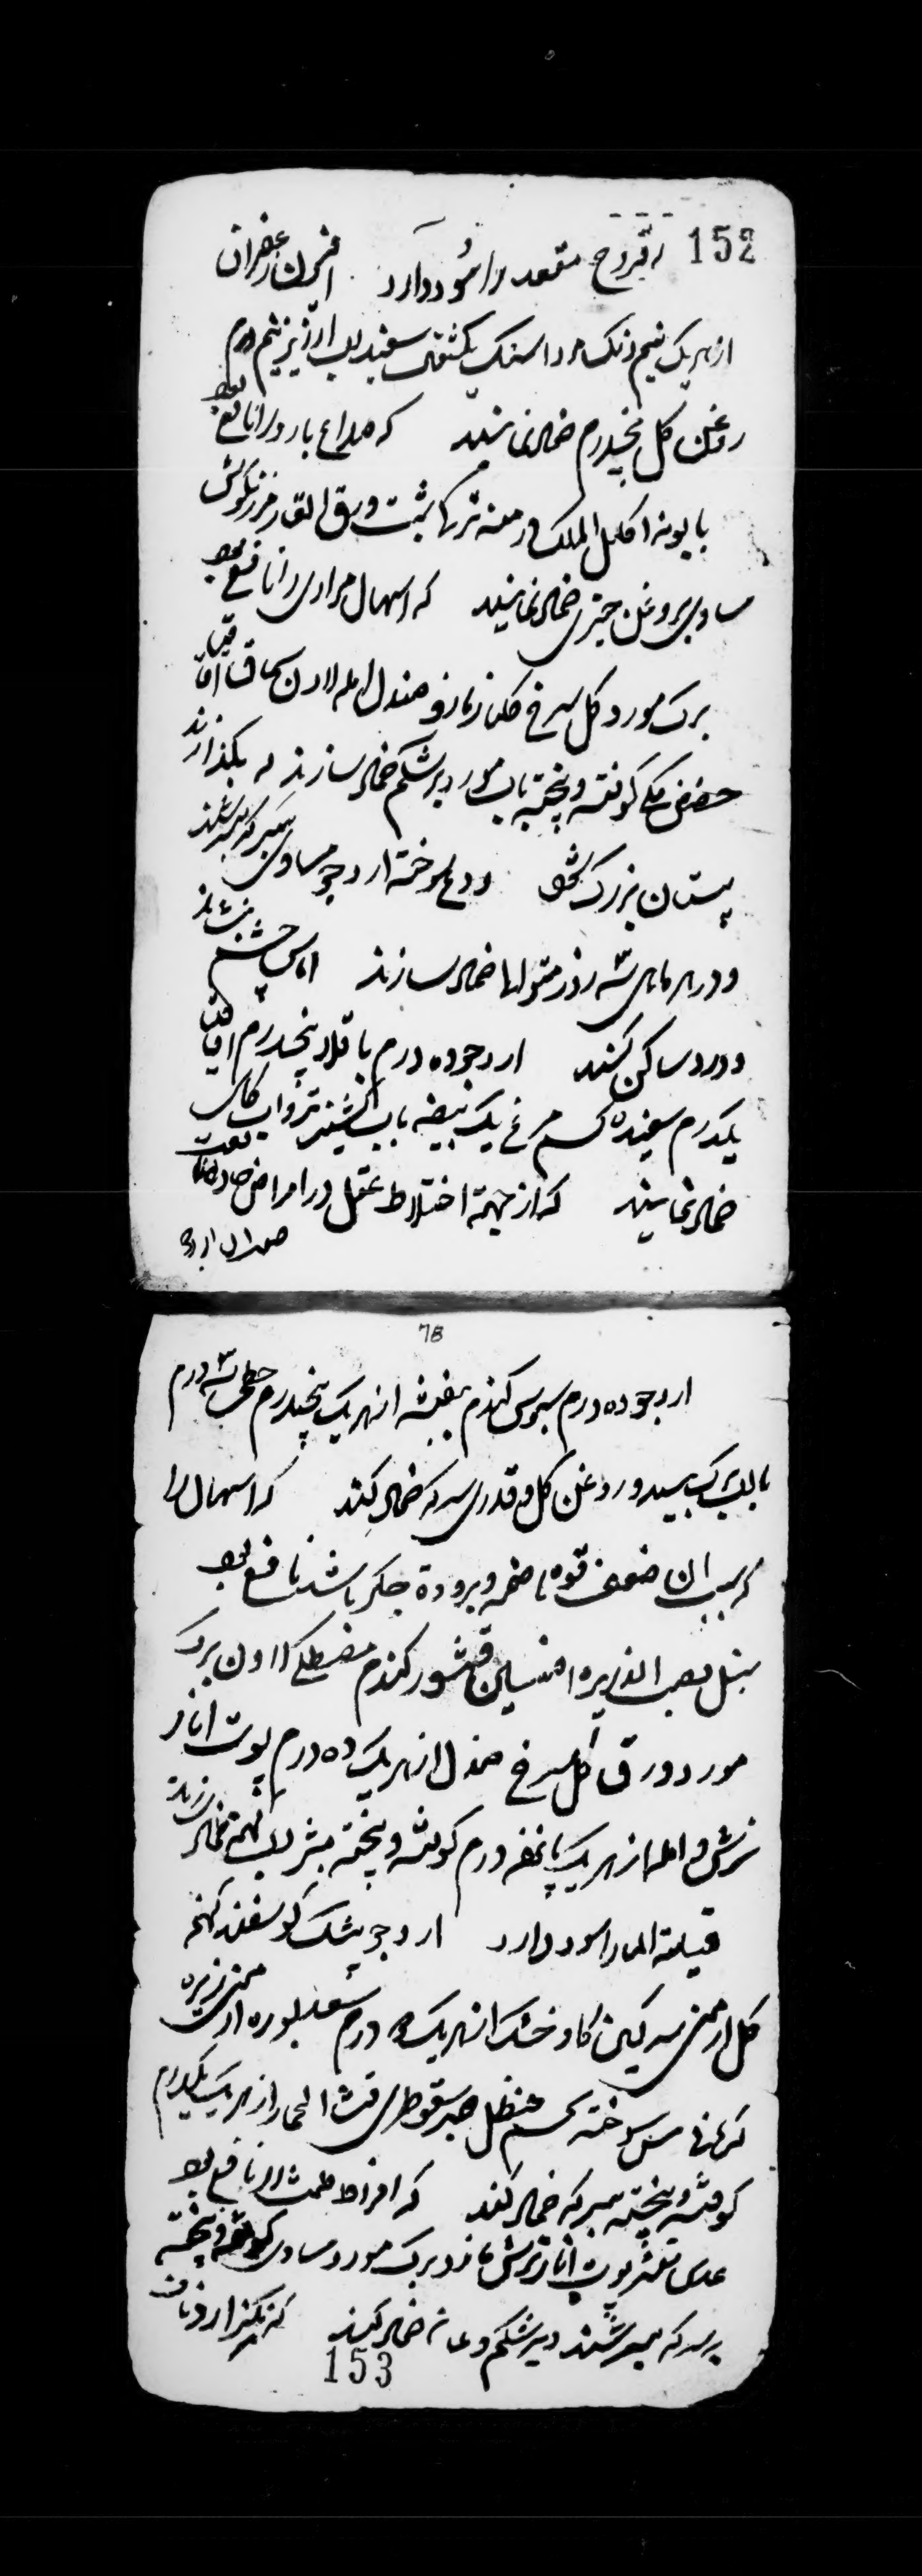 152
که قروح مقعد را سود دارد افیون زعفران
از هر یک نیم دنک مرداسنک یکمثقال سفیداب ارزیز نیم درم
روغن کل پنجدرم ضماد نمایند که صداع بارد را نافع بود
بابونه اکلیل الملک درمنه ترکی شبت ورق الغار مرزنکوش
مساوی بروغن خیری ضماد نمایند که اسهال مراری را نافع بود
برک مورد کل سرخ کلنار مازو صندل امله لادن سماق اقاقیا
حضض مکی کوفته و پخته باب مورد بر شکم ضماد سازند که نکذارند
پستان بزرک شود ودع سوخته ارد جو مساوی بسرکه بسرشند
و در هر ماهی سه روز متوالی ضماد سازند اماس چشم بنشاند
و درد ساکن کند ارد جو ده درم باقلا پنجدرم اقاقیا
یکدرم سفیده تخم مرغ یک بیضه باب کشنیز تر و اب کاسنی
ضماد نمایند که از جهة اختلاط عقل در امراض حاده نافعست
صندل ارد
78
ارد جو ده درم سبوس کندم بنفشه از هر یک پنجدرم خطمی سه درم
باب برک بید و روغن کل و قدری سرکه ضماد کنند که اسهال را
که بسبب ان ضعف قوه هاضمه و برودة جکر باشد نافع بود
سنبل قصب الذریره افسنتین قشور کندم مصطکی لادن برک
مورد ورق کل سرخ صندل از هر یک ده درم پوست انار
ترش و امله از هر یک پانزده درم کوفته و پخته بشراب کهنه ضماد سازند
قیلة الما را سود دارد ارد جو پشک کوسفند کهنه
کل ارمنی سرکین کاو خشک از هر یک درم سعد بوره ارمنی زیره
کرمانی سوخته شحم حنظل صبر سقوطری قثاء الحمار از هر یک یکدرم
کوفته و پخته بسرکه ضماد کنند که افراط طمث را نافع بود
عدس مقشر پوست انار ترش مازو برک مورد مساوی کوفته و پخته
بسرکه بسرشند و بر شکم و عانه ضماد کنند که نکذارد ناف
153